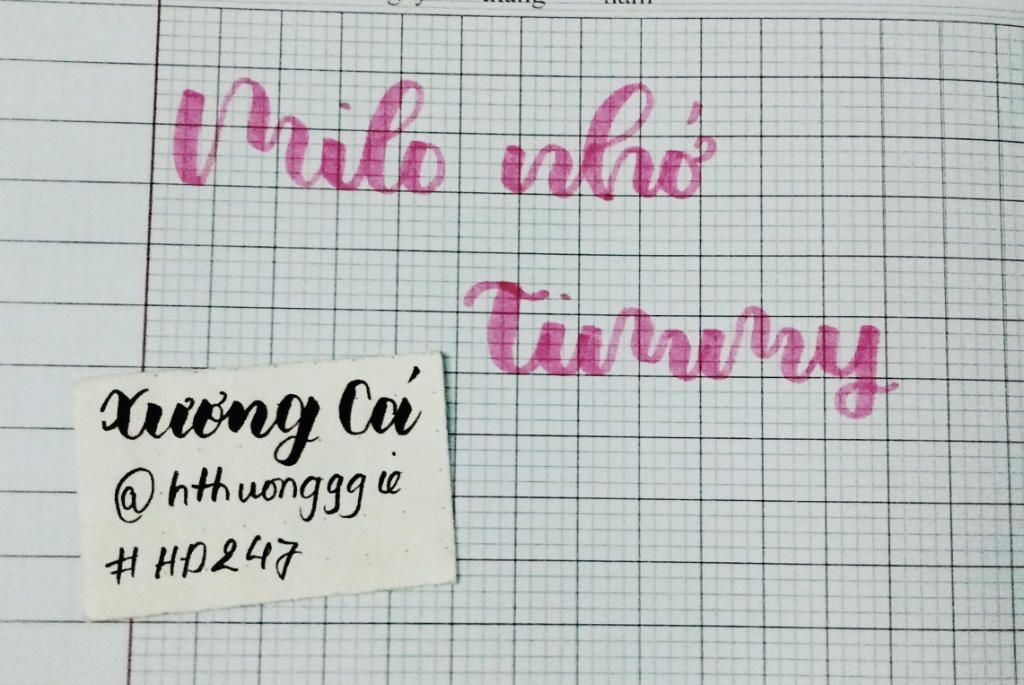 Milo nhớ
Timmy
Xương Cá
@hthuongggie
#HD247